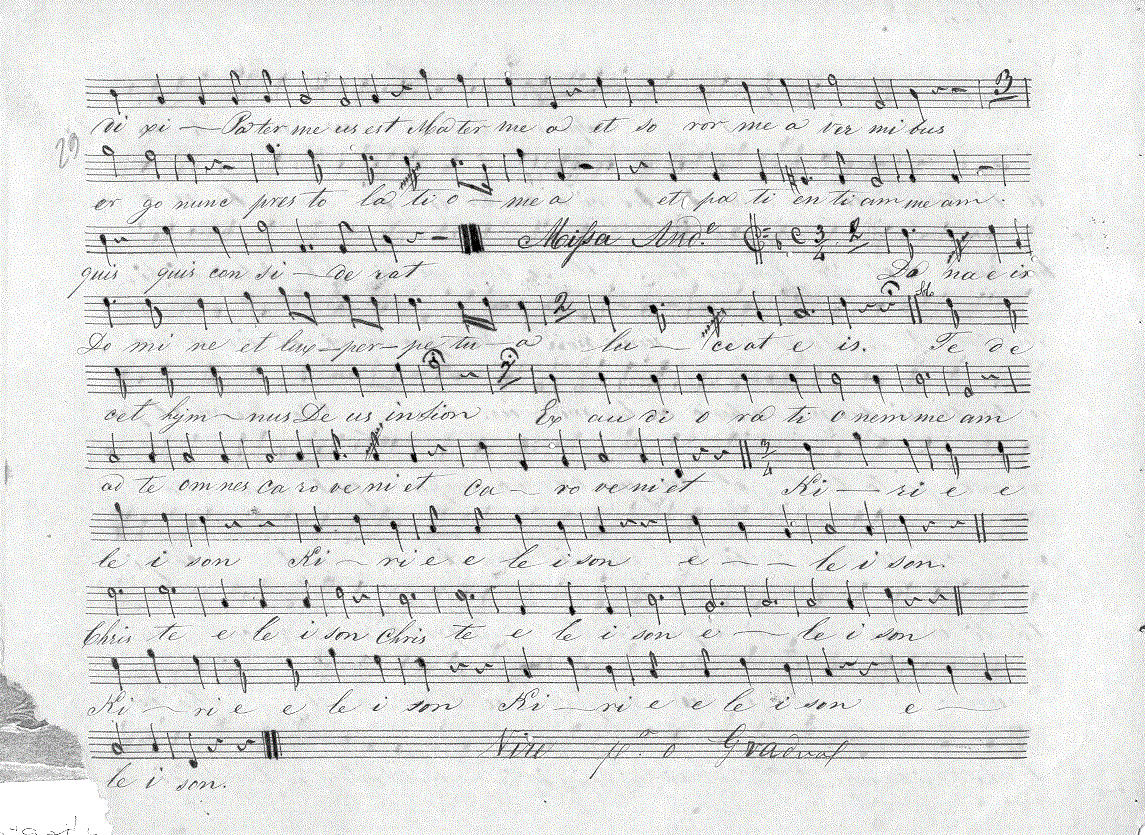 di xi - Pater me us est Mater me a et so ror me a ver mi bus
29
er go nunc pres to la ti o - me a et pa ti en ti am me am.
Missa And.e 3/4 2
quis quis con si - de rat Do na e is
Do mi ne et lux - per - pe tu - a - lu - ce at e is. Te de
cet hym - nus De us in sion Ex au di o ra ti o nem me am
ad te om nes ca ro ve ni et ca - ro ve ni et Ki - ri e e
le i son Ki - ri e e le i son e - - le i son.
Chris te e le i son Chris te e le i son e - le i son
Ki - ri e e le i son Ki - ri e e le i son e -
o Gradual
le i son.